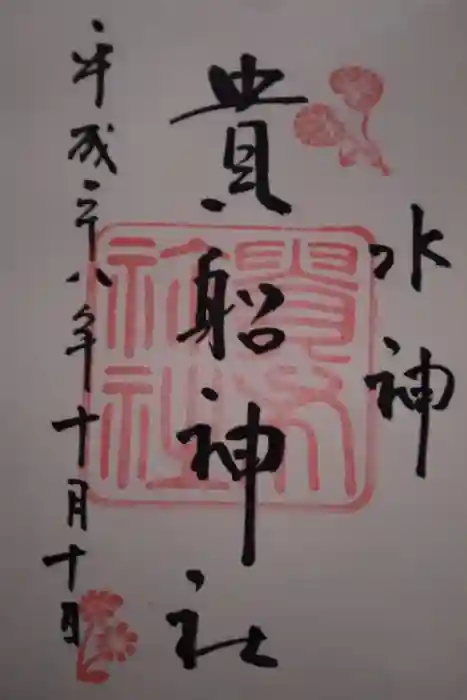 水神
貴船神社
平成二十八年十月十日